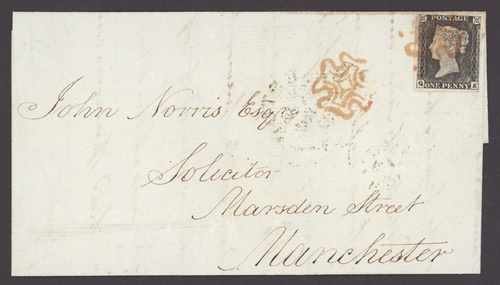 POSTAGE
ONE PENNY
John Norris Esqre
Solicitor
Marsden Street
Manchester